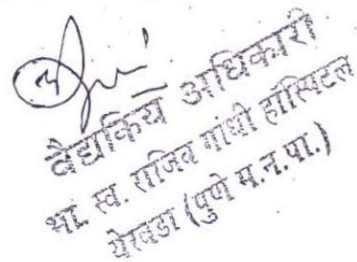 वैद्यकिय अधिकारी
भा. स्व. राजिव गांधी हॉस्पिटल
येरवडा (पुणे म.न.पा.)